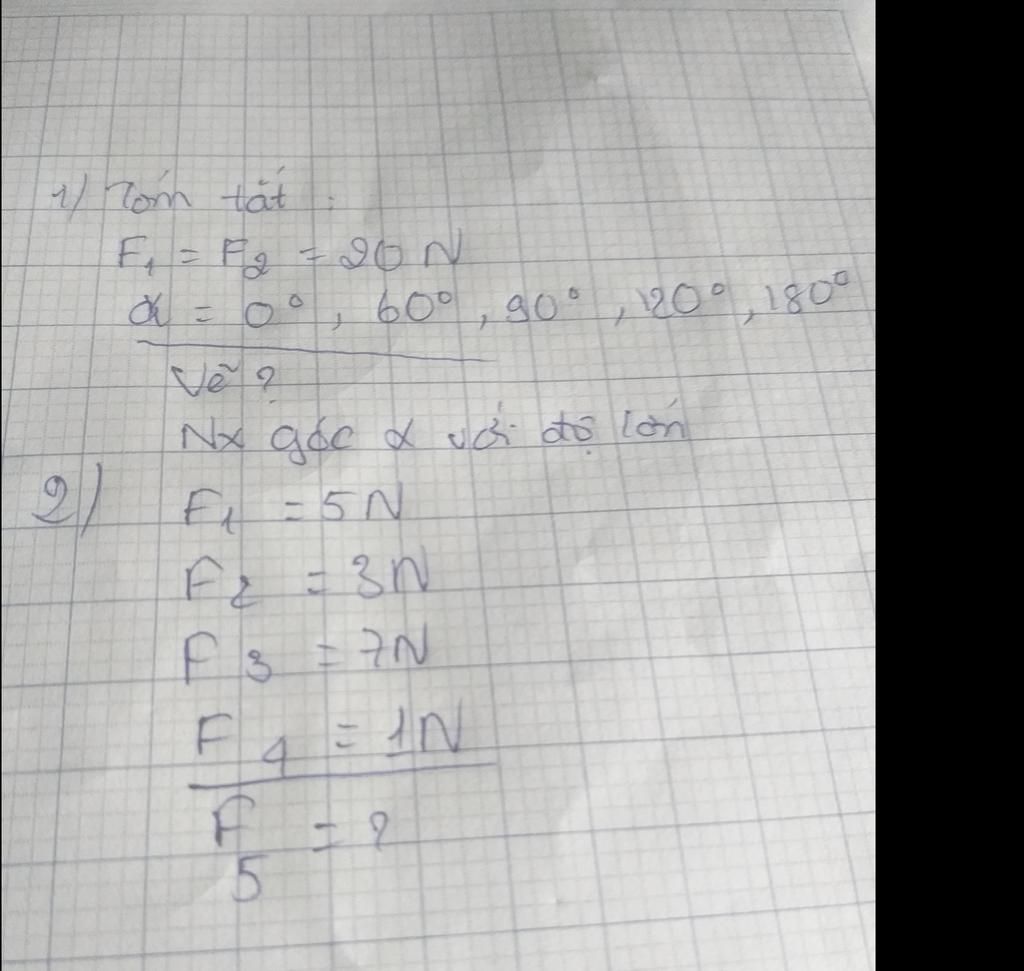 1) Tóm tắt :
F₁ = F₂ = 20 N
α = 0°, 60°, 90°, 120°, 180°
Vẽ ?
Nx góc α với độ lớn
2) F₁ = 5N
F₂ = 3N
F₃ = 7N
F₄ = 1N
F₅ = ?